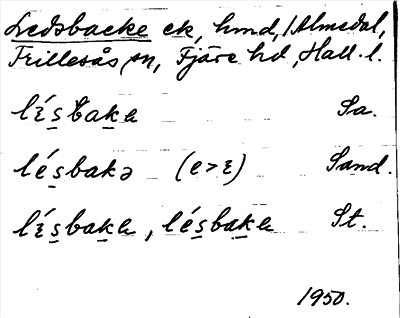 Ledsbacke ek, hmd, Almedal,
Frillesås sn, Fjäre hd, Hall. l.
lɛ́sbaka Sa.
lésbakə (e>ɛ) Sand.
lɛ́sbaka, lésbaka St.
1950.